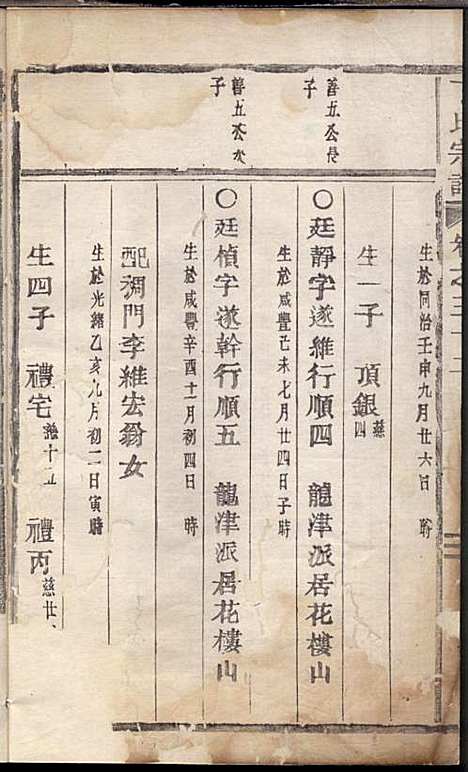 氏宗譜
卷之三十二
生於同治壬申九月廿六日 時
生一子 頂銀 慈四
善五公長子
〇廷靜字遂維行順四 龍津派居花樓山
生於咸豐己未七月廿四日子時
善五公次子
〇廷楨字遂幹行順五 龍津派居花樓山
生於咸豐辛酉十一月初四日 時
配禂門李維宏翁女
生於光緒乙亥九月初二日寅時
生四子 禮宅 慈十五 禮丙 慈廿